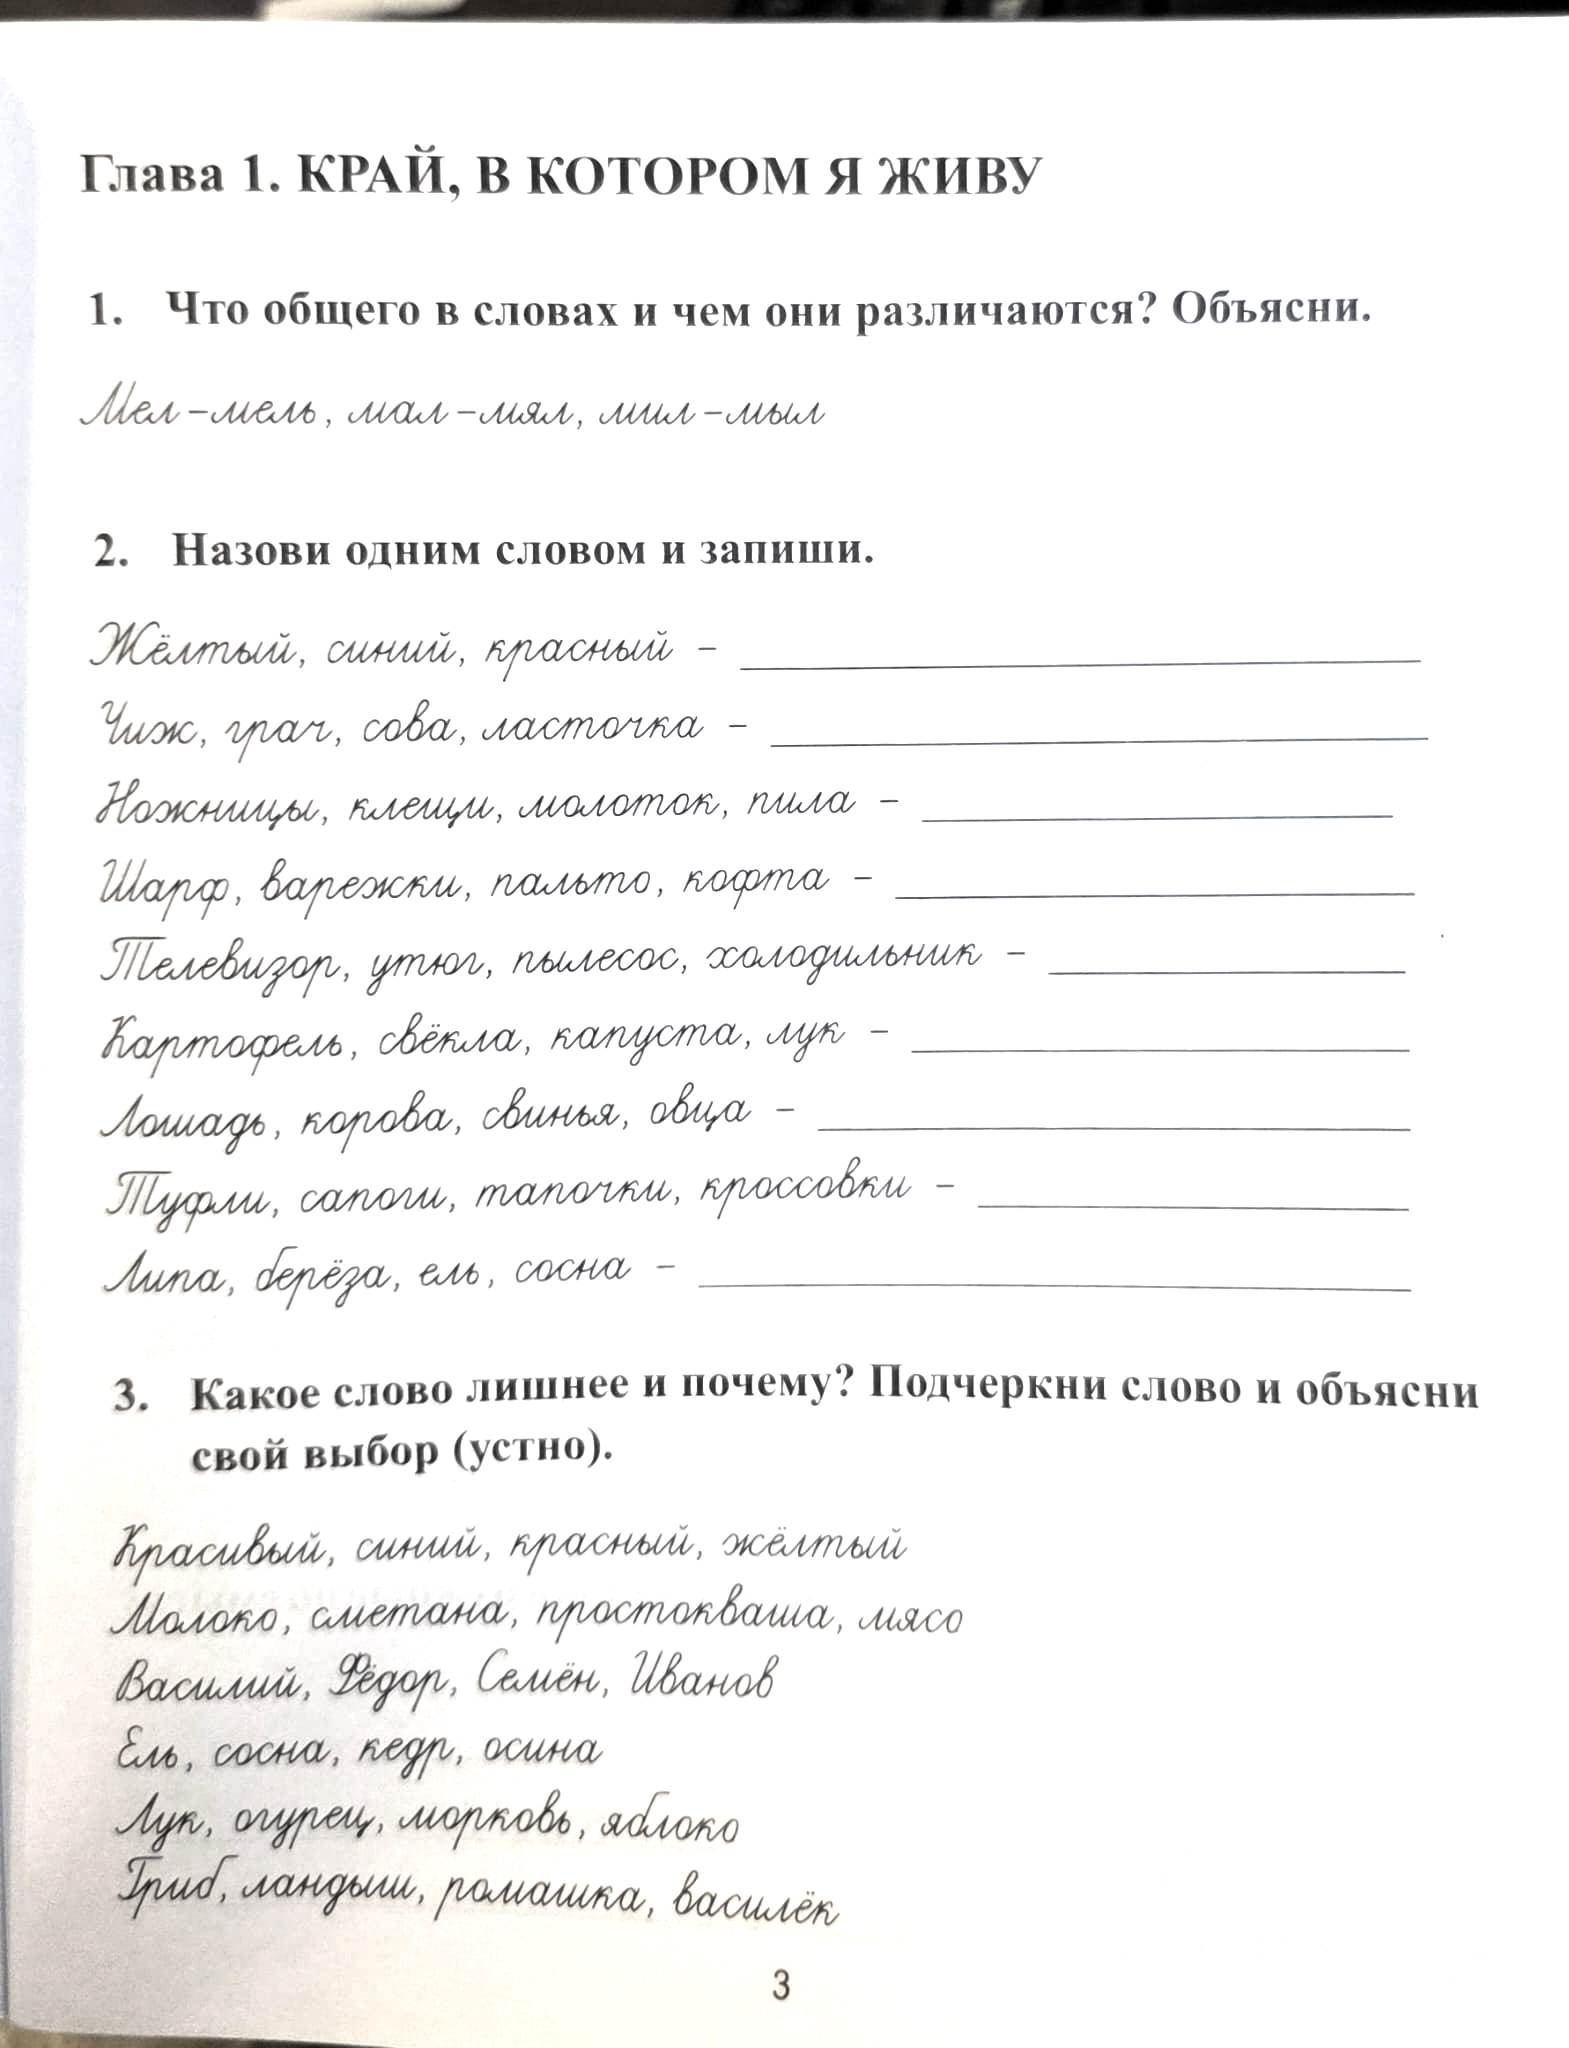 Глава 1. КРАЙ, В КОТОРОМ Я ЖИВУ
1. Что общего в словах и чем они различаются? Объясни.
Мел – мель, мал – мял, мил – мыл
2. Назови одним словом и запиши.
Жёлтый, синий, красный –
Чиж, грач, сова, ласточка –
Ножницы, клещи, молоток, пила –
Шарф, варежки, пальто, кофта –
Телевизор, утюг, пылесос, холодильник –
Картофель, свёкла, капуста, лук –
Лошадь, корова, свинья, овца –
Туфли, сапоги, тапочки, кроссовки –
Липа, берёза, ель, сосна –
3. Какое слово лишнее и почему? Подчеркни слово и объясни
свой выбор (устно).
Красивый, синий, красный, жёлтый
Молоко, сметана, простокваша, мясо
Василий, Фёдор, Семён, Иванов
Ель, сосна, кедр, осина
Лук, огурец, морковь, яблоко
Гриб, ландыш, ромашка, василёк
3